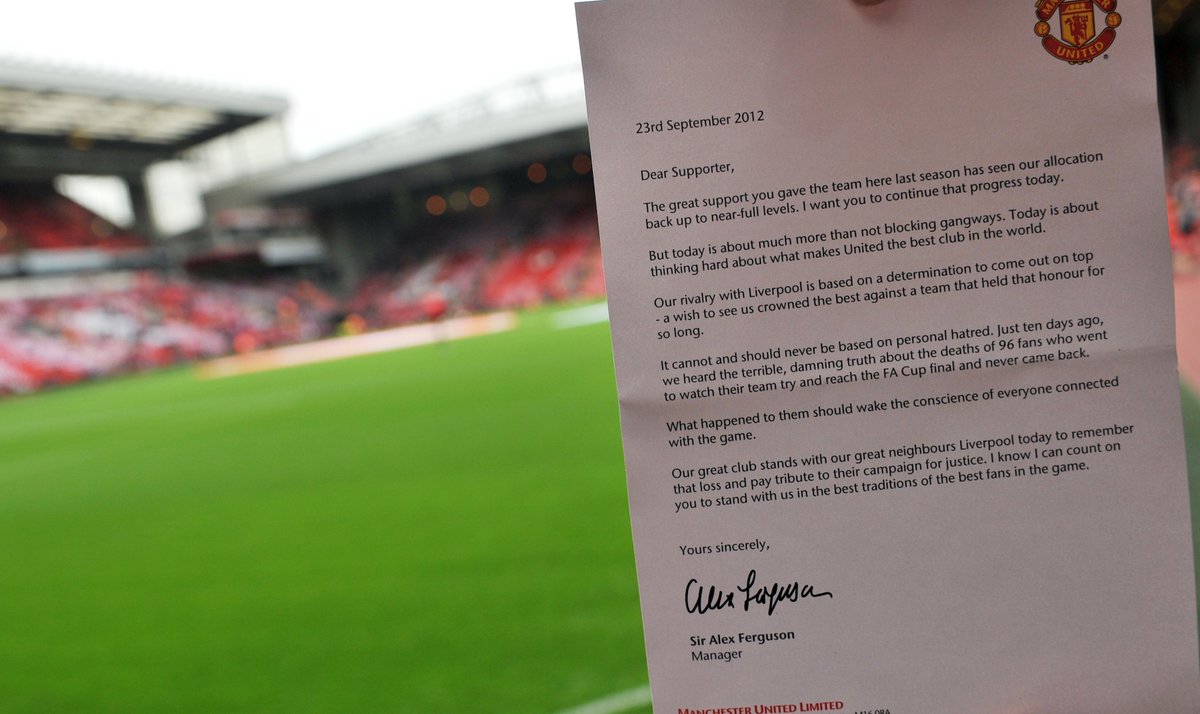 MANCHESTER
UNITED
23rd September 2012
Dear Supporter,
The great support you gave the team here last season has seen our allocation
back up to near-full levels. I want you to continue that progress today.
But today is about much more than not blocking gangways. Today is about
thinking hard about what makes United the best club in the world.
Our rivalry with Liverpool is based on a determination to come out on top
- a wish to see us crowned the best against a team that held that honour for
so long.
It cannot and should never be based on personal hatred. Just ten days ago,
we heard the terrible, damning truth about the deaths of 96 fans who went
to watch their team try and reach the FA Cup final and never came back.
What happened to them should wake the conscience of everyone connected
with the game.
Our great club stands with our great neighbours Liverpool today to remember
that loss and pay tribute to their campaign for justice. I know I can count on
you to stand with us in the best traditions of the best fans in the game.
Yours sincerely,
Alex Ferguson
Sir Alex Ferguson
Manager
MANCHESTER UNITED LIMITED